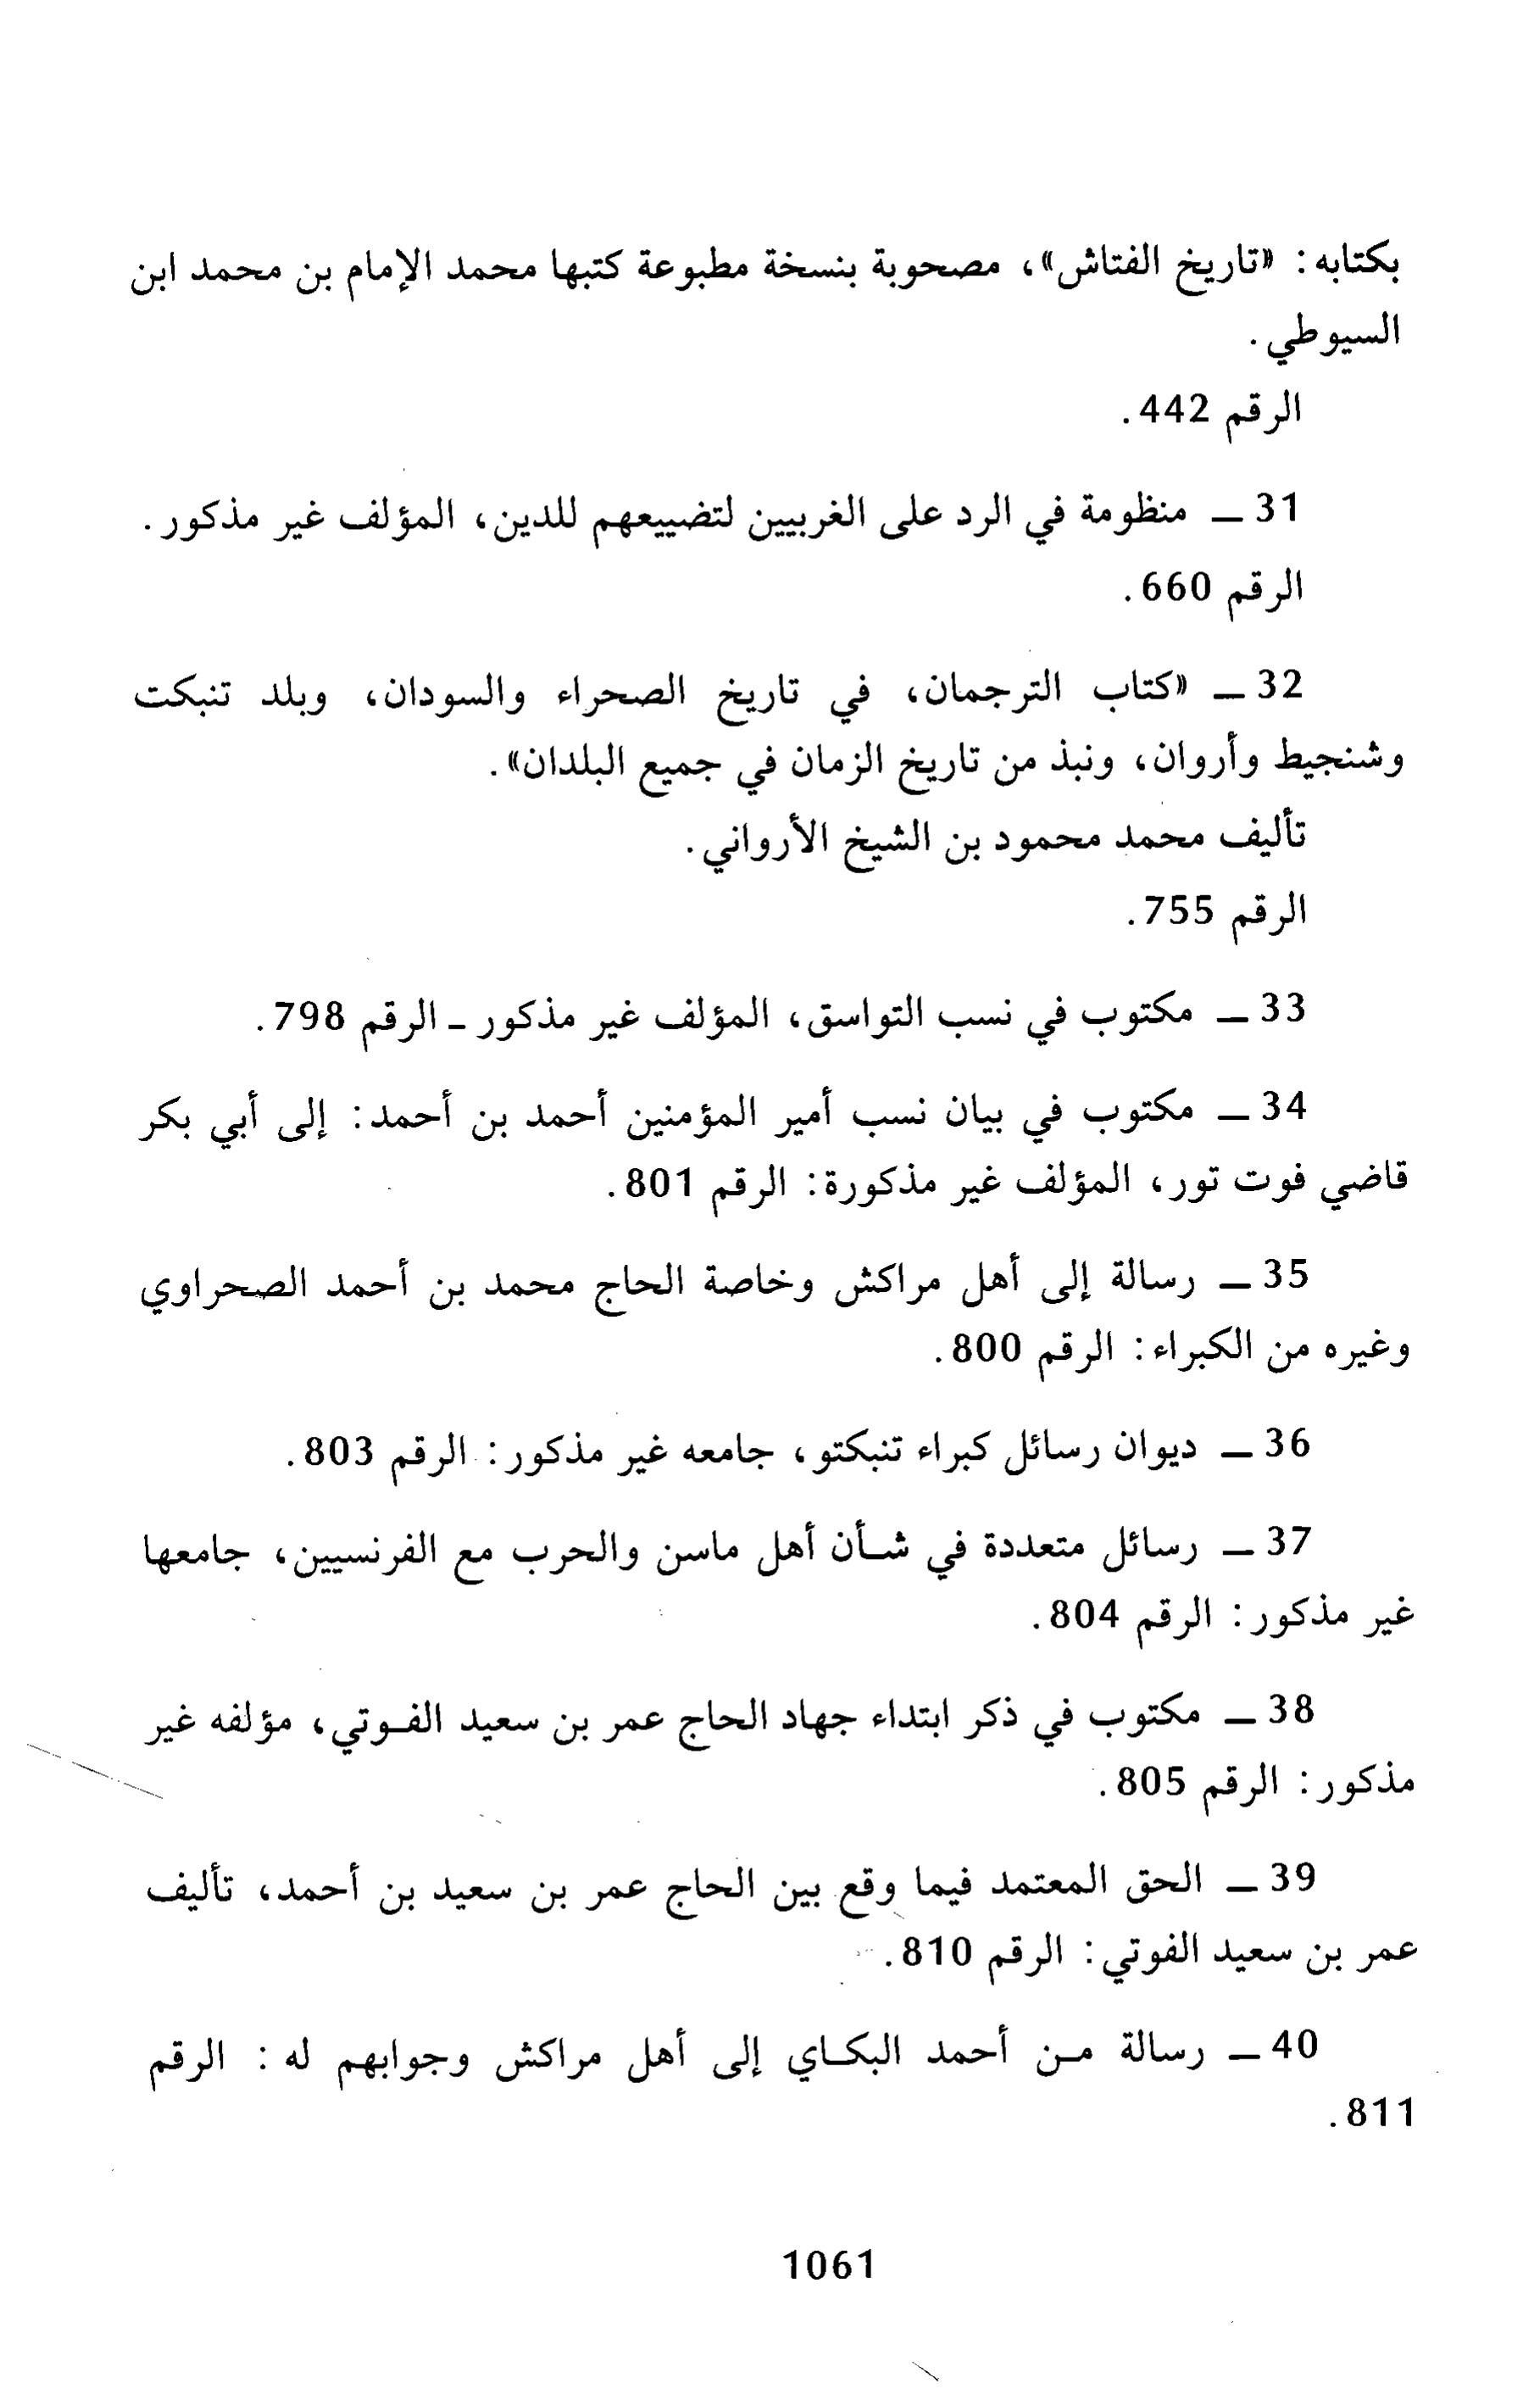 بكتابه: «تاريخ الفتاش»، مصحوبة بنسخة مطبوعة كتبها محمد الإمام بن محمد ابن
السيوطي.
الرقم 442.
31 ــ منظومة في الرد على الغربيين لتضييعهم للدين، المؤلف غير مذكور.
الرقم 660.
32 ــ «كتاب الترجمان، في تاريخ الصحراء والسودان، وبلد تنبكت
وشنجيط وأروان، ونبذ من تاريخ الزمان في جميع البلدان».
تأليف محمد محمود بن الشيخ الأرواني.
الرقم 755.
33 ــ مكتوب في نسب التواسق، المؤلف غير مذكور - الرقم 798.
34 ــ مكتوب في بيان نسب أمير المؤمنين أحمد بن أحمد: إلى أبي بكر
قاضي فوت تور، المؤلف غير مذكورة: الرقم 801.
35 ــ رسالة إلى أهل مراكش وخاصة الحاج محمد بن أحمد الصحراوي
وغيره من الكبراء: الرقم 800.
36 ــ ديوان رسائل كبراء تنبكتو، جامعه غير مذكور: الرقم 803.
37 ــ رسائل متعددة في شـأن أهل ماسن والحرب مع الفرنسيين، جامعها
غير مذكور: الرقم 804.
38 ــ مكتوب في ذكر ابتداء جهاد الحاج عمر بن سعيد الفـوتي، مؤلفه غير
مذكور: الرقم 805.
39 ــ الحق المعتمد فيما وقع بين الحاج عمر بن سعيد بن أحمد، تأليف
عمر بن سعيد الفوتي: الرقم 810.
40 ــ رسالة مـن أحمد البكـاي إلى أهل مراكش وجوابهم له: الرقم
811.
1061